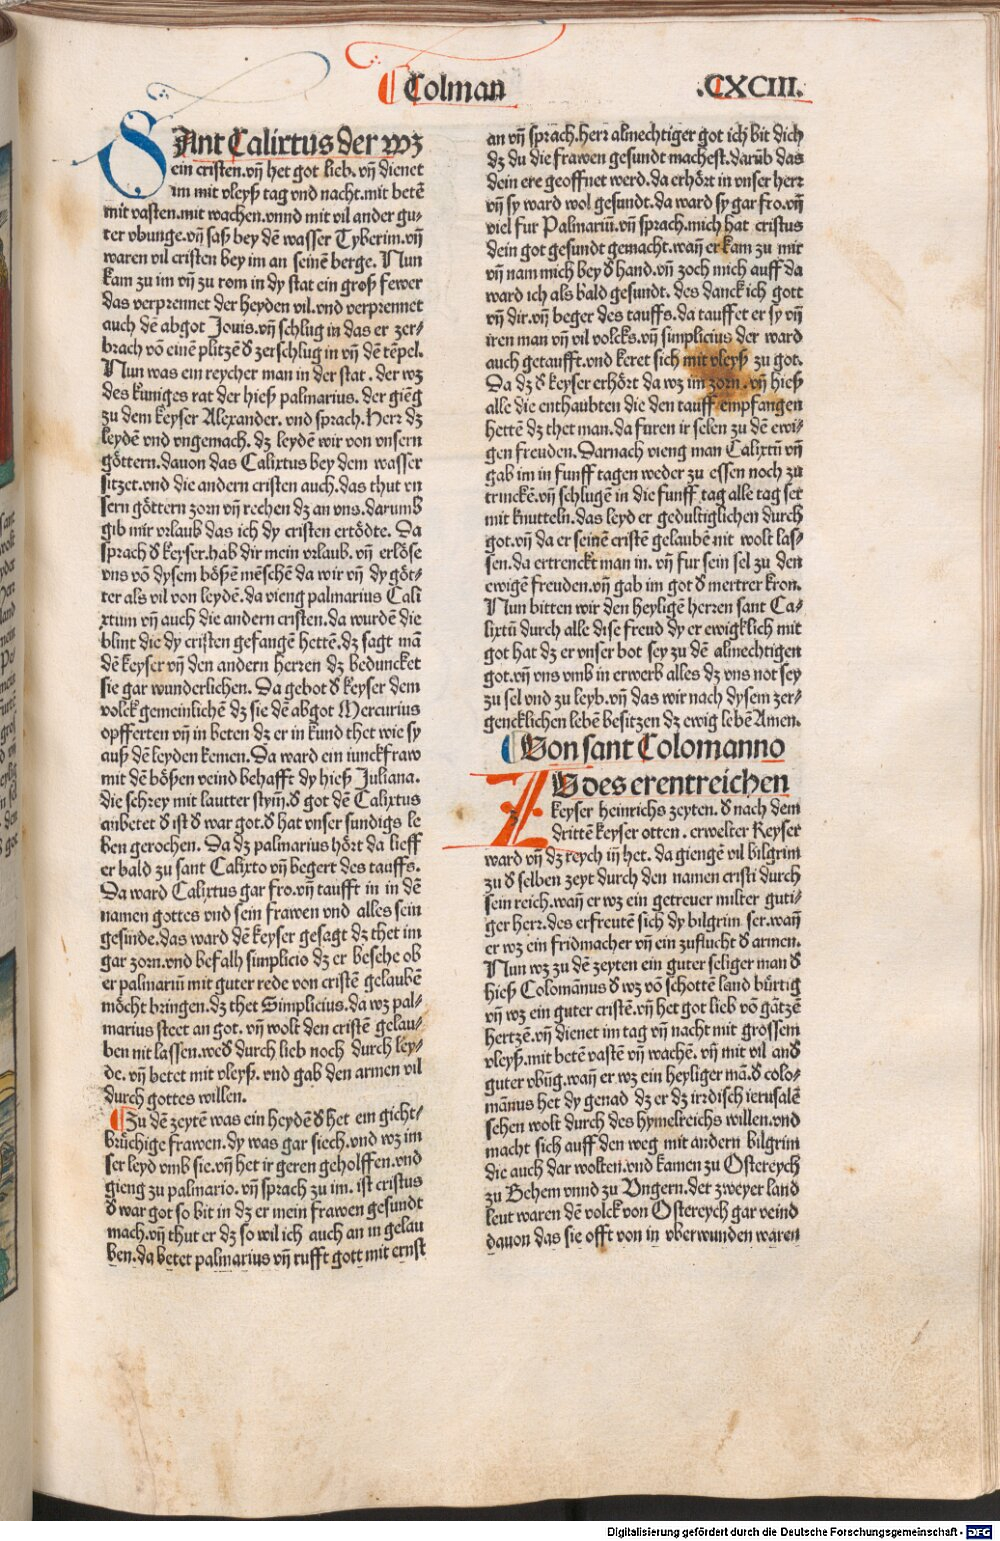 Colman
.CXCIII.
SAnt Calixtus der wz
ein cristen.vn̄ het got lieb.vn̄ dienet
im mit vleyß tag vnd nacht.mit betē
mit vasten.mit wachen.vnnd mit vil ander gu⸗
ter vbunge.vn̄ saß bey dē wasser Tyberim.vn̄
waren vil cristen bey im an seinē berge. Nun
kam zu im vn̄ zu rom in dy stat ein groß fewer
das verprennet der heyden vil.vnd verprennet
auch dē abgot Jouis.vn̄ schlug in das er zer⸗
brach vō einē plitzē đ zerschlug in vn̄ dē tēpel.
Nun was ein reycher man in der stat.der wz
des kuniges rat der hieß palmarius. der gieng
zu dem keyser Alexander. vnd sprach. Herr dz
leydē vnd vngemach. dz leydē wir von vnsern
göttern.dauon das Calixtus bey dem wasser
sitzet.vnd die andern cristen auch.das thut vn
sern göttern zorn vn̄ rechen dz an vns.darumb
gib mir vrlaub das ich dy cristen ertödte. Da
sprach đ keyser.hab dir mein vrlaub. vn̄ erlöse
vns vō dysem bößē mēschē da wir vn̄ dy göt⸗
ter als vil von leydē.da vieng palmarius Cali
xtum vn̄ auch die andern cristen.da wurdē die
blint die dy cristen gefangē hettē.dz sagt mā
dē keyser vn̄ den andern herren dz beduncket
sie gar wunderlichen. Da gebot đ keyser dem
volck gemeinlichē dz sie dē abgot Mercurius
opfferten vn̄ in beten dz er in kund thet wie sy
auß dē leyden kemen.Da ward ein iunckfraw
mit dē bößen veind behafft dy hieß Juliana.
die schrey mit lautter stym̄.đ got dē Calixtus
anbetet đ ist đ war got.đ hat vnser sundigs le
ben gerochen. Da dz palmarius hört da lieff
er bald zu sant Calixto vn̄ begert des tauffs.
Da ward Calixtus gar fro.vn̄ taufft in in dē
namen gottes vnd sein frawen vnd alles sein
gesinde.das ward dē keyser gesagt dz thet im
gar zorn.vnd befalh simplicio dz er besehe ob
er palmariū mit guter rede von cristē gelaubē
möcht bringen.dz thet Simplicius.da wz pal⸗
marius steet an got. vn̄ wolt den cristē gelau⸗
ben nit lassen.weđ durch lieb noch durch ley⸗
de. vn̄ betet mit vleyß. vnd gab den armen vil
durch gottes willen.
Zu dē zeytē was ein heydē đ het ein gicht⸗
brüchige frawen.dy was gar siech.vnd wz im
ser leyd vmb sie.vn̄ het ir geren geholffen.vnd
gieng zu palmario.vn̄ sprach zu im. ist cristus
đ war got so bit in dz er mein frawen gesundt
mach.vn̄ thut er dz so wil ich auch an in gelau
ben.da betet palmarius vn̄ rufft gott mit ernst
an vn̄ sprach.herr almechtiger got ich bit dich
dz du die frawen gesundt machest.darūb das
dein ere geoffnet werd.da erhört in vnser herr
vn̄ sy ward wol gesundt.da ward sy gar fro.vn̄
viel fur Palmariū.vn̄ sprach.mich hat cristus
dein got gesundt gemacht.wan̄ er kam zu mir
vn̄ nam mich bey đ hand.vn̄ zoch mich auff da
ward ich als bald gesundt. des danck ich gott
vn̄ dir.vn̄ beger des tauffs.da tauffet er sy vn̄
iren man vn̄ vil volcks.vn̄ simplicius der ward
auch getaufft.vnd keret sich mit vleyß zu got.
Da dz đ keyser erhört da wz im zorn.vn̄ hieß
alle die enthaubten die den tauff empfangen
hettē dz thet man.da furen ir selen zu dē ewi⸗
gen freuden. Darnach vieng man Calixtū vn̄
gab im in funff tagen weder zu essen noch zu
trinckē.vn̄ schlugē in die funff tag alle tag ser
mit knutteln.das leyd er gedultiglichen durch
got.vn̄ da er seinē cristē gelaubē nit wolt las⸗
sen.da ertrenckt man in. vn̄ fur sein sel zu den
ewigē freuden.vn̄ gab im got đ mertrer kron.
Nun bitten wir den heyligē herren sant Ca⸗
lixtū durch alle dise freud dy er ewigklich mit
got hat dz er vnser bot sey zu dē almechtigen
got.vn̄ vns vmb in erwerb alles dz vns not sey
zu sel vnd zu leyb.vn̄ das wir nach dysem zer⸗
gencklichen lebē besitzen dz ewig lebē Amen.
Von sant Colomanno
ZV des erentreichen
keyser heinrichs zeyten. đ nach dem
drittē keyser otten. erwelter Keyser
ward vn̄ dz reych in̄ het. da giengē vil bilgrim
zu đ selben zeyt durch den namen cristi durch
sein reich.wan̄ er wz ein getreuer milter guti⸗
ger herr.des erfreutē sich dy bilgrim ser.wan̄
er wz ein fridmacher vn̄ ein zuflucht đ armen.
Nun wz zu dē zeyten ein guter seliger man đ
hieß Colomānus đ wz vō schottē land bürtig
vn̄ wz ein guter cristē.vn̄ het got lieb vō gātzē
hertzē.vn̄ dienet im tag vn̄ nacht mit grossem
vleyß.mit betē vastē vn̄ wachē. vn̄ mit vil anđ
guter vbūg.wan̄ er wz ein heyliger mā.đ colo⸗
mānus het dy genad dz er dz irrdisch ierusalē
sehen wolt durch des hymelreichs willen.vnd
macht sich auff den weg mit andern bilgrim
die auch dar wolten.vnd kamen zu Ostereych
zu Behem vnnd zu Vngern.der zweyer land
leut waren dē volck von Ostereych gar veind
dauon das sie offt von in vberwunden waren
Digitalisierung gefördert durch die Deutsche Forschungsgemeinschaft - DFG